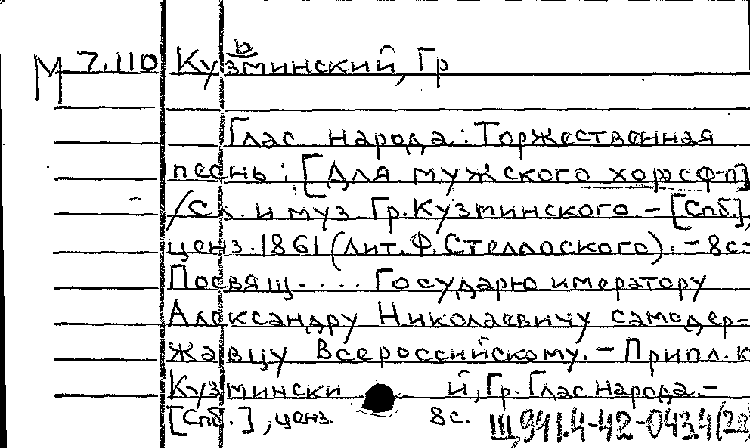 М 7.110 Кузьминский, Гр
Глас народа: Торжественная
песнь: [Для мужского хора с ф-п]
/Сл. и муз Гр. Кузминского - [Спб.],
ценз. 1861 (лит. Ф. Стелловского). - 8с.
Посвящ.... Государю имератору
Александру Николаевичу самодер-
жавцу Всероссийскому. - Припл. к
Кузмински й, Гр. Глас народа. -
[Спб.], ценз. 8с. Щ941.4-42-043.4(2